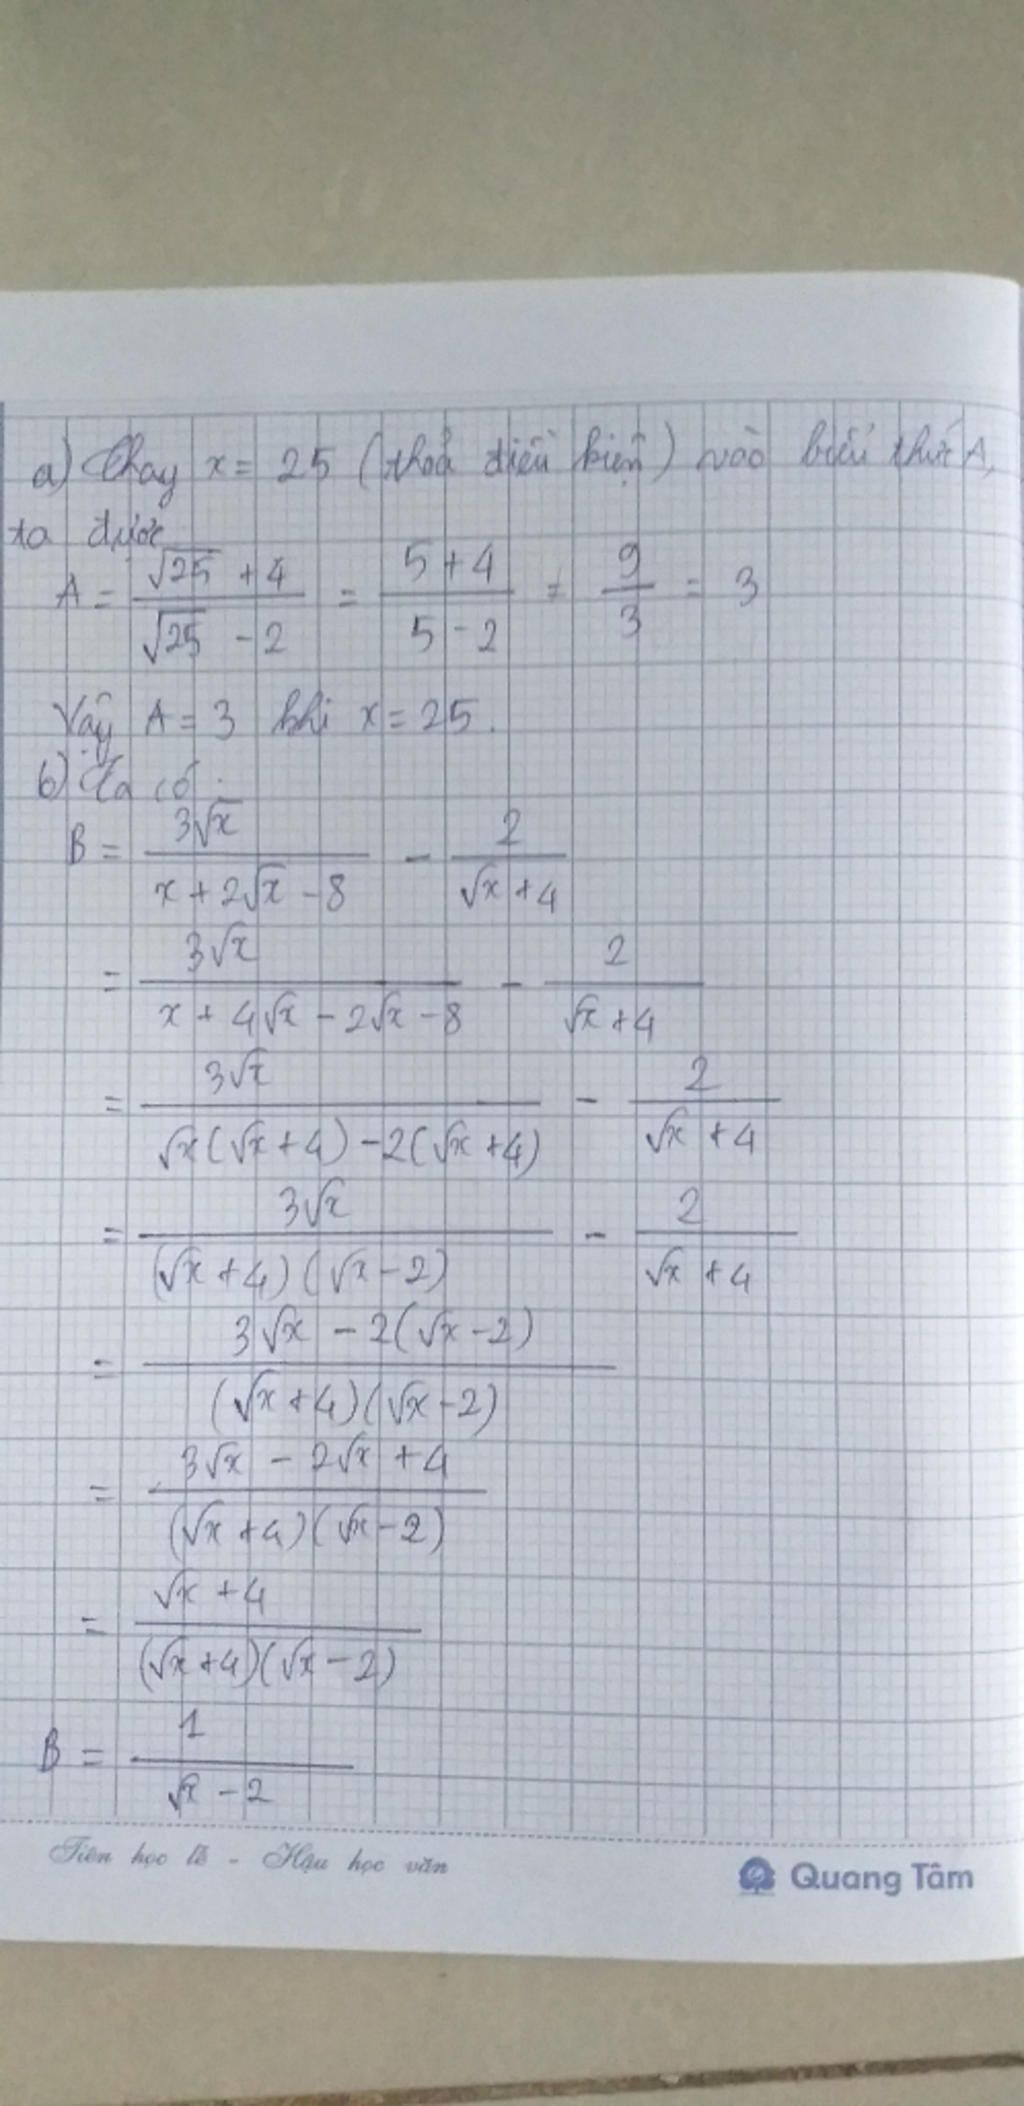 a) Thay x = 25 (thoả điều kiện) vào biểu thức A,
ta được
A = (√25 + 4)/(√25 - 2) = (5 + 4)/(5 - 2) = 9/3 = 3
Vậy A = 3 khi x = 25.
b) Ta có:
B = 3√x/(x + 2√x - 8) - 2/(√x + 4)
= 3√x/(x + 4√x - 2√x - 8) - 2/(√x + 4)
= 3√x/(√x(√x + 4) - 2(√x + 4)) - 2/(√x + 4)
= 3√x/((√x + 4)(√x - 2)) - 2/(√x + 4)
= (3√x - 2(√x - 2))/((√x + 4)(√x - 2))
= (3√x - 2√x + 4)/((√x + 4)(√x - 2))
= (√x + 4)/((√x + 4)(√x - 2))
B = 1/(√x - 2)
Tiên học lễ - Hậu học văn
Quang Tâm